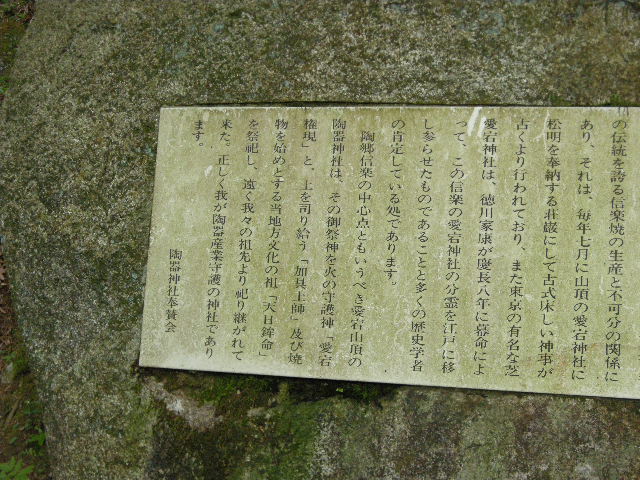 の伝統を誇る信楽焼の生産と不可分の関係に
あり、それは、毎年七月に山頂の愛宕神社に
松明を奉納する荘厳にして古式床しい神事が
古くより行われており、また東京の有名な芝
愛宕神社は、徳川家康が慶長八年に幕命によ
って、この信楽の愛宕神社の分霊を江戸に移
し参らせたものであることと多くの歴史学者
の肯定している処であります。
陶郷信楽の中心点ともいうべき愛宕山頂の
陶器神社は、その御祭神を火の守護神「愛宕
権現」と、土を司り給う「加具土師」及び焼
物を始めとする当地方文化の祖「天日鉾命」
を祭祀し、遠く我々の祖先より祀り継がれて
来た。正しく我が陶器産業守護の神社であり
ます。
陶器神社奉賛会